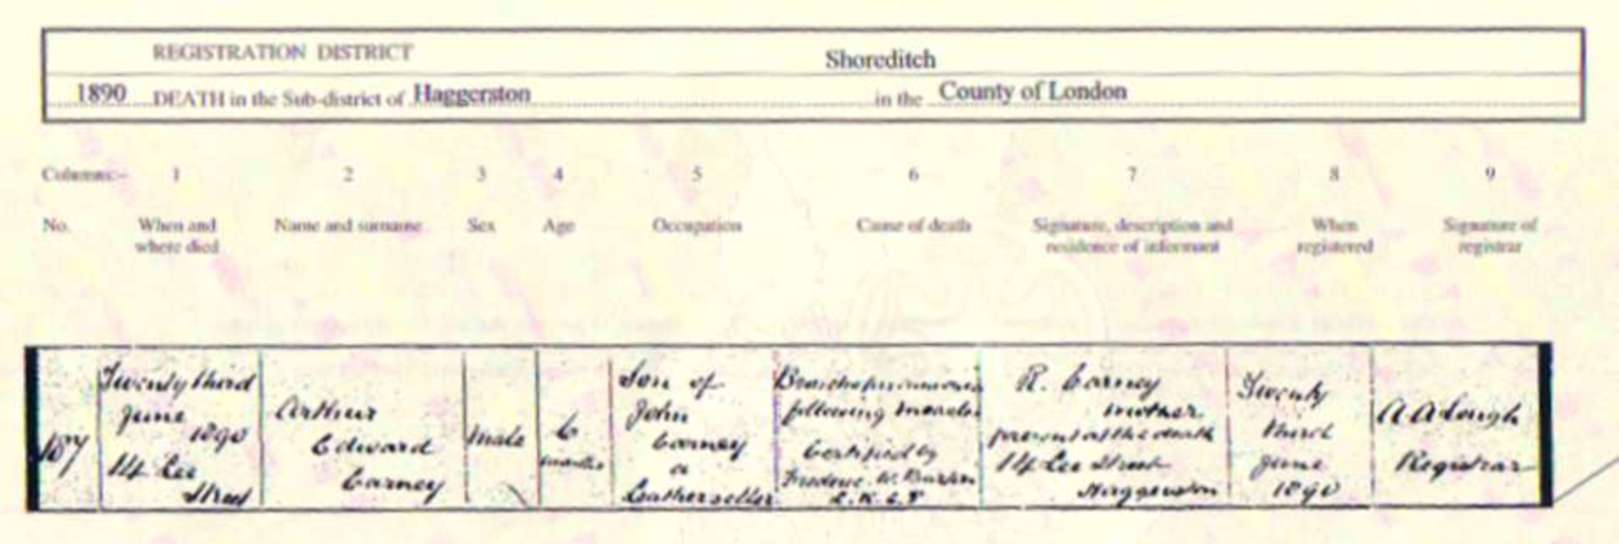 REGISTRATION DISTRICT Shoreditch
1890 DEATH in the Sub-district of Haggerston in the County of London
Columns:- 1 2 3 4 5 6 7 8 9
No. When and where died Name and surname Sex Age Occupation Cause of death Signature, description and residence of informant When registered Signature of registrar
187
Twenty third
June
1890
14 Lee
Street
Arthur
Edward
Carney
Male
6
months
Son of
John
Carney
a
Leatherseller
Bronchopneumonia
following measles
Certified by
Frederic W.
L.R.C.P
R. Carney
mother
present at the death
14 Lee Street
Haggerston
Twenty
third
June
1890
A A Lough
Registrar